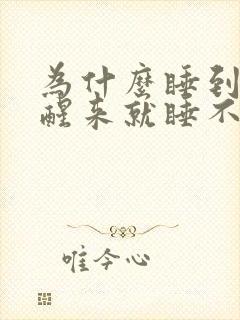 為什麼睡到
醒来就睡不
唯今心